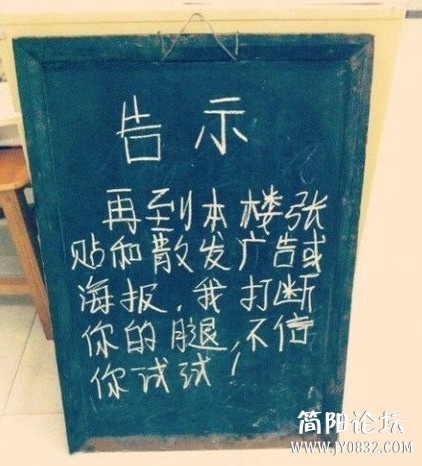 告示
再到本楼张
贴和散发广告或
海报，我打断
你的腿，不信
你试试！
简阳论坛
www.JY0832.com